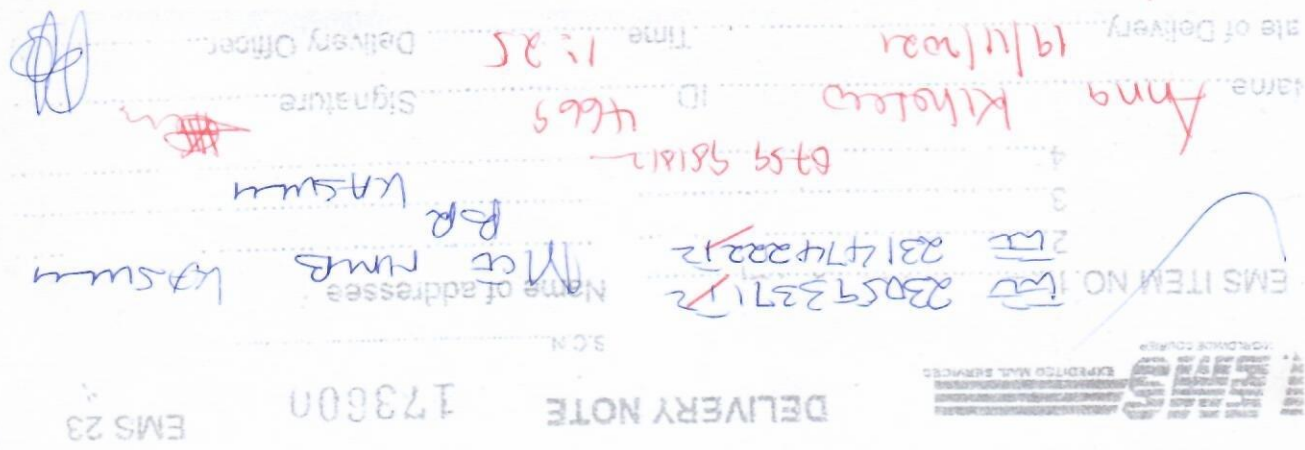 EMS EXPEDITED MAIL SERVICES
WORLDWIDE COURIER
DELIVERY NOTE 173600 EMS 23
S.C.N.
EMS ITEM NO 1 230593371 TZ Name of addresses NMB KASULU
2 231474222 TZ BR KASULU
3
4 0759 981812
Name Anna ID 4669 Signature
ate of Delivery 19/11/2021 Time 1:25 Delivery Officer